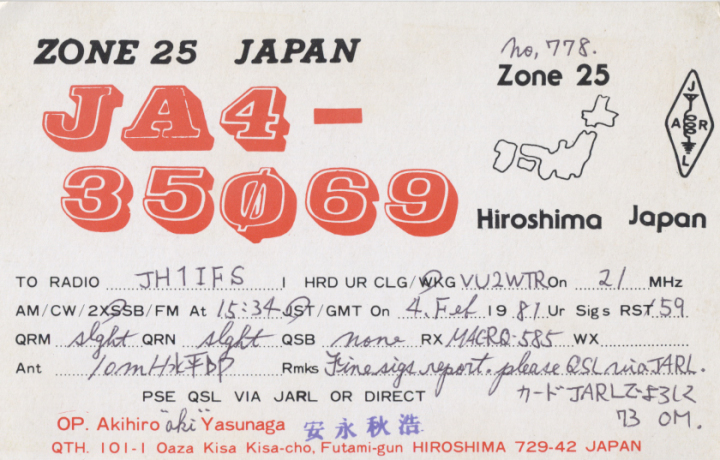 ZONE 25 JAPAN
no, 778.
Zone 25
JA4-
35Ø69
J
A R
L
Hiroshima Japan
TO RADIO JH1IFS I HRD UR CLG/WKG VU2WTR On 21 MHz
AM/CW/2XSSB/FM At 15:34 JST/GMT On 4. Feb 1981 Ur Sigs RST 59
QRM slght QRN slght QSB none RX WX
Ant 10mH DP Rmks Fine sigs report. please QSL via JARL.
PSE QSL VIA JARL OR DIRECT カード JARL
73 OM.
OP. Akihiro "aki" Yasunaga 安永秋浩
QTH. 101-1 Oaza Kisa Kisa-cho, Futami-gun HIROSHIMA 729-42 JAPAN